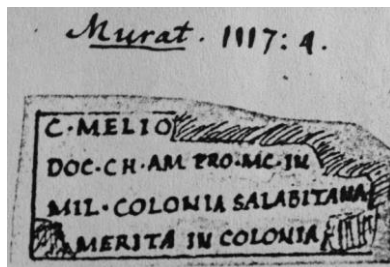 Murat. 1117: 4.
C·MELIO
DOC·CH·AM PRO·MC·IN
MIL·COLONIA SALABITANA
MERITA IN COLONIA